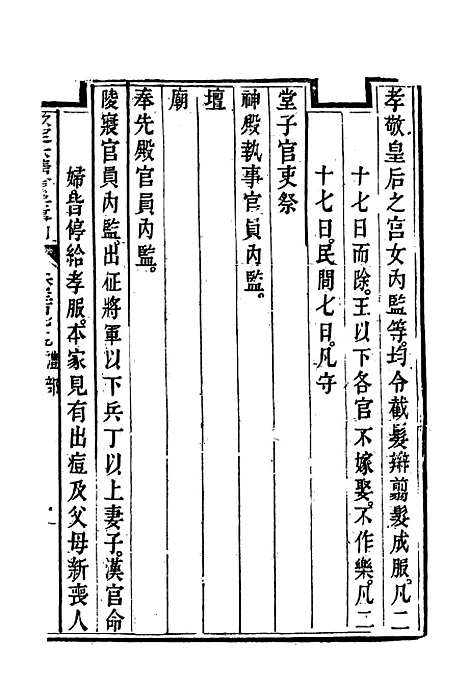 孝敬皇后之宮女內監等。均令截髮辮翦髮成服。凡二
十七日而除。王以下各官不嫁娶。不作樂。凡二
十七日。民間七日。凡守
堂子官吏祭
神殿執事官員內監。
壇
廟
奉先殿官員內監。
陵寢官員內監。出征將軍以下兵丁以上妻子。漢官命
婦皆停給孝服。本家見有出痘及父母新喪人
禮部